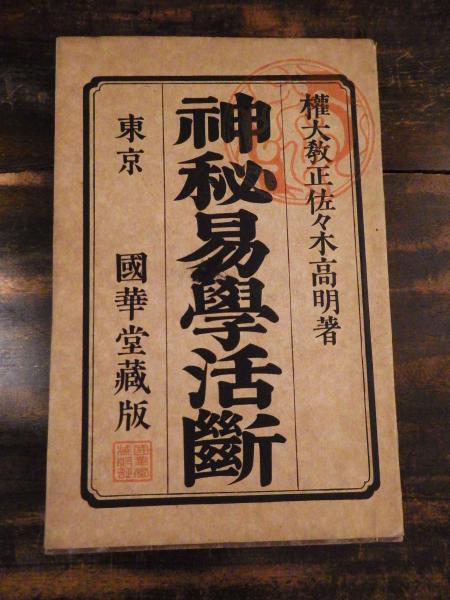 權大教正佐々木高明著
神秘易學活斷
東京 國華堂藏版